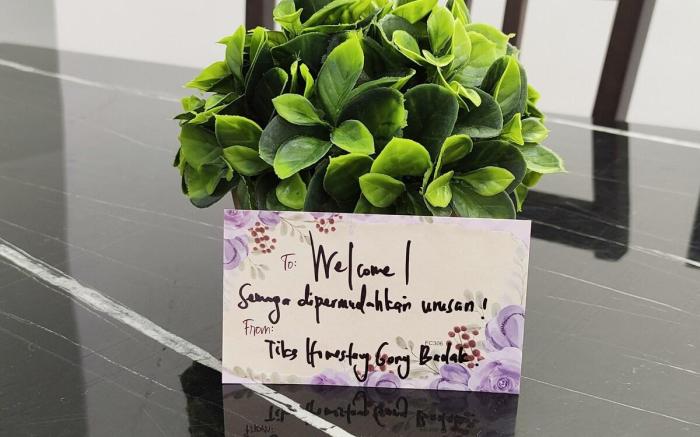 To: Welcome!
Semoga dipermudahkan urusan!
From:
Tiks Homestay Gong Badak
FC306